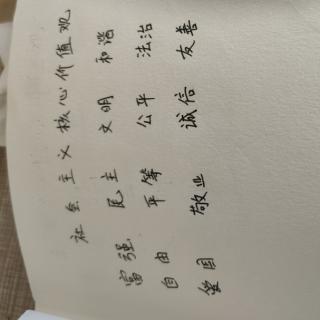 社会主义核心价值观
富强 民主 文明 和谐
自由 平等 公平 法治
爱国 敬业 诚信 友善